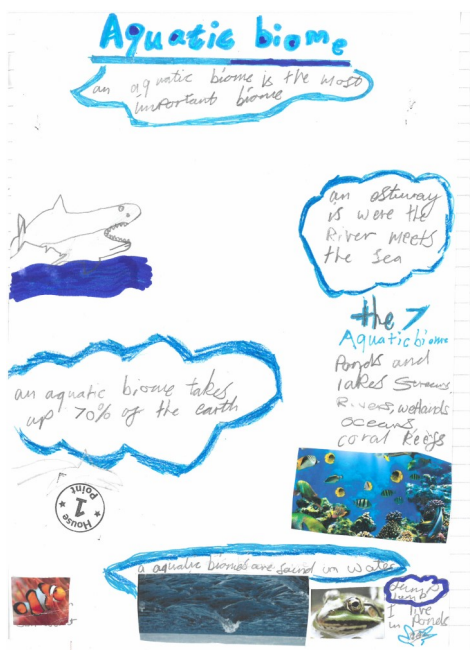 Aquatic biome
an aquatic biome is the most
important biome
an estuway
is were the
River meets
the sea
the 7
Aquatic biome
Ponds and
lakes Streams
Rivers, wetlands
oceans,
coral Reefs
an aquatic biome takes
up 70% of the earth
House
1
Point
a aquatic biomes are found in water
I live
in Ponds